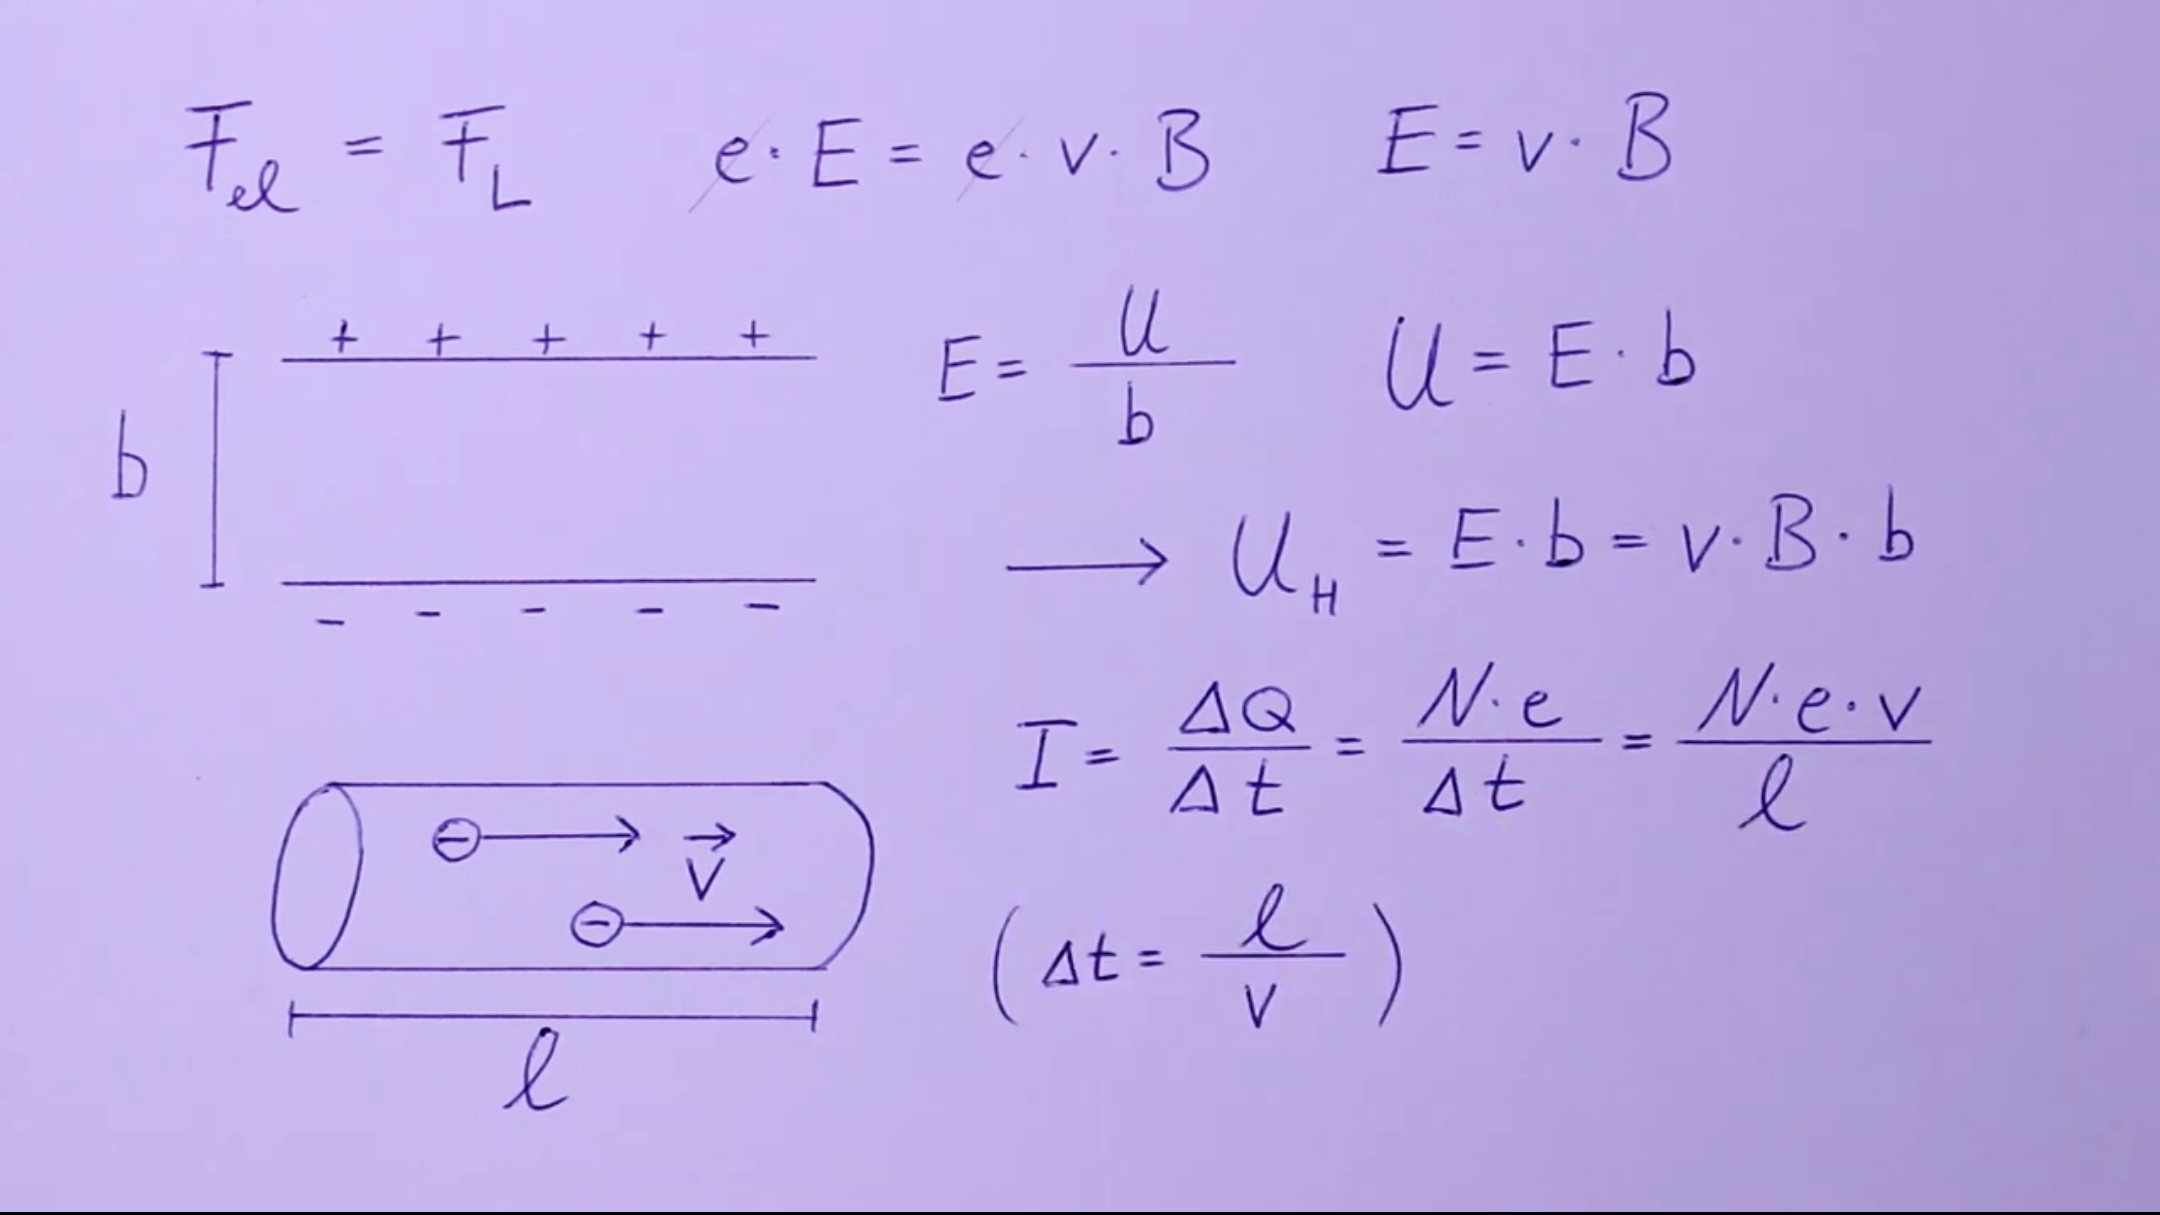 F_el = F_L   e · E = e · v · B   E = v · B
+ + + + +
b   E = U/b   U = E · b
- - - - -
→ U_H = E · b = v · B · b
I = ΔQ/Δt = N·e/Δt = N·e·v/l
⊖ → v⃗
⊖ →
(Δt = l/v)
l